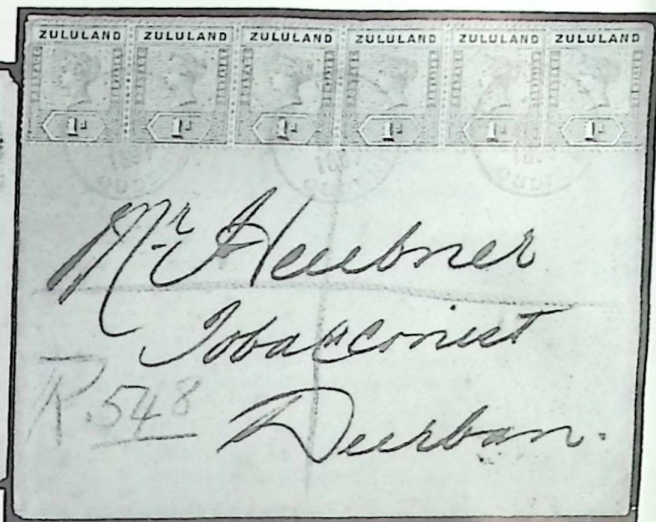 ZULULAND ZULULAND ZULULAND ZULULAND ZULULAND ZULULAND
1d 1d 1d 1d 1d 1d
Mr Heubner
Tobacconist
R.548
Durban.